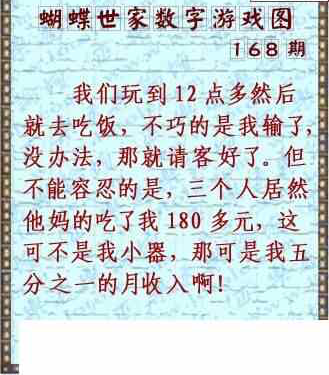 蝴蝶世家数字游戏图
168期
我们玩到12点多然后
就去吃饭，不巧的是我输了，
没办法，那就请客好了。但
不能容忍的是，三个人居然
他妈的吃了我180多元，这
可不是我小器，那可是我五
分之一的月收入啊！